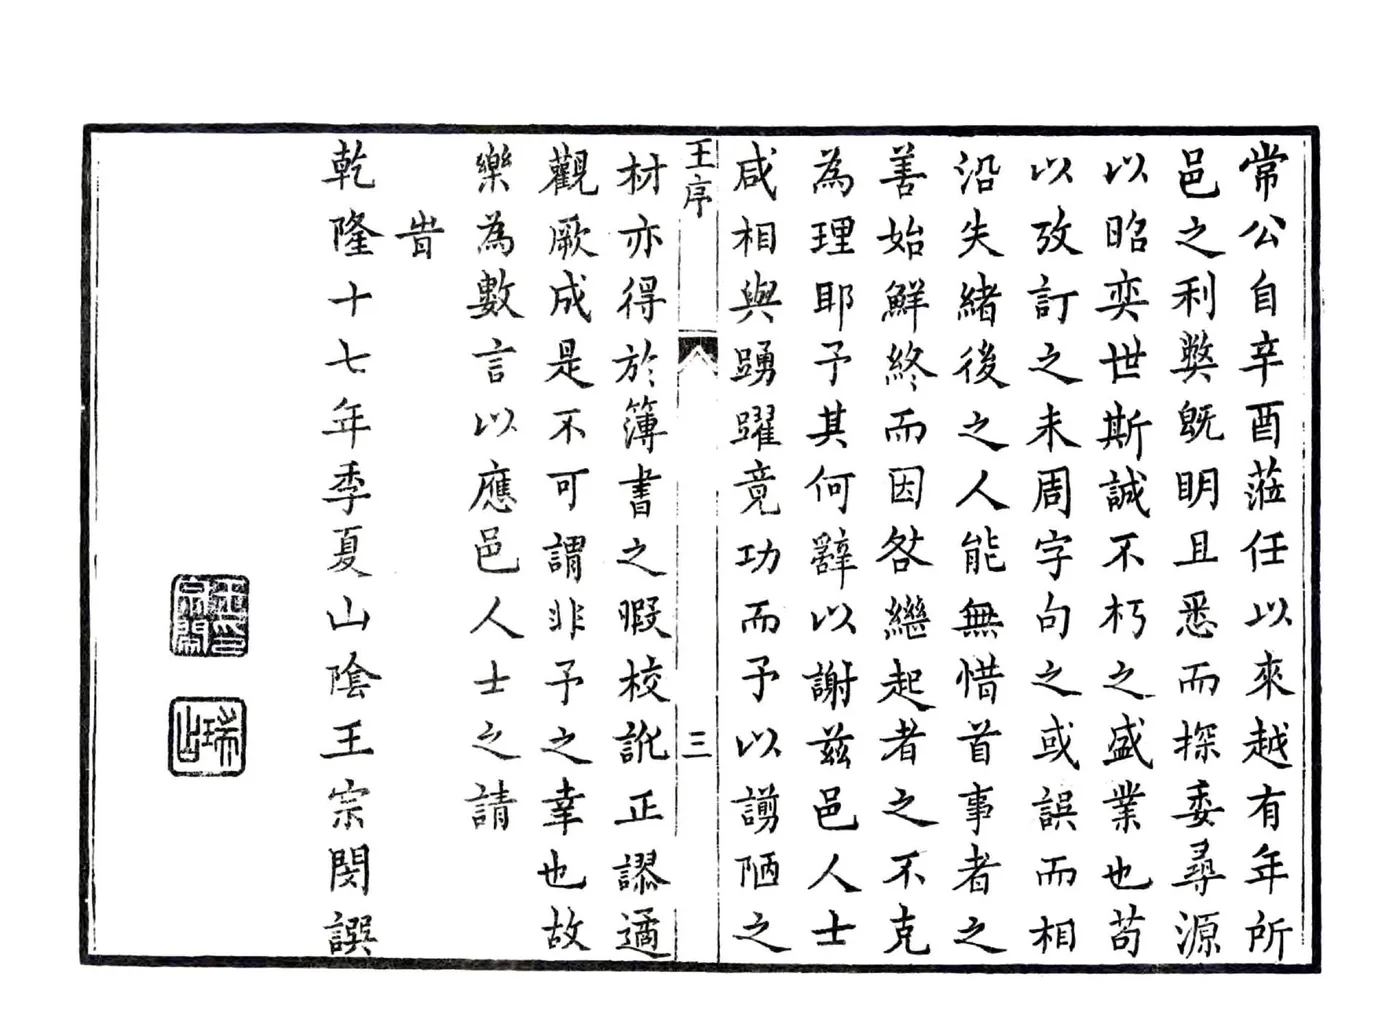 常公自辛酉蒞任以來越有年所
邑之利獘旣明且悉而探委尋源
以昭奕世斯誠不朽之盛業也苟
以攷訂之未周字句之或誤而相
沿失緒後之人能無惜首事者之
善始鮮終而因咎繼起者之不克
為理耶予其何辭以謝茲邑人士
咸相與踴躍竟功而予以譾陋之
王序
三
材亦得於簿書之暇校訛正謬遹
觀厥成是不可謂非予之幸也故
樂為數言以應邑人士之請
旹
乾隆十七年季夏山陰王宗閔譔
王宗閔印
瑞山